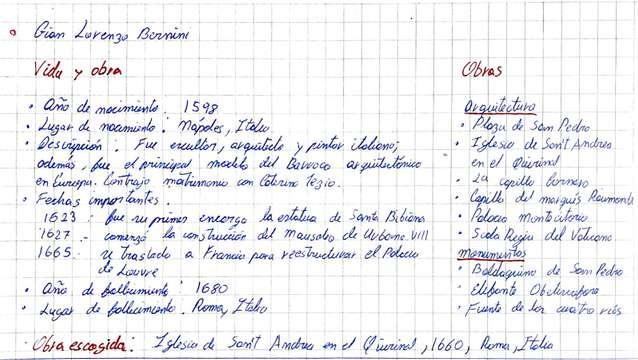 Gian Lorenzo Bernini
Vida y obra
• Año de nacimiento: 1598
• Lugar de nacimiento: Nápoles, Italia
• Descripción: Fue escultor, arquitecto y pintor italiano;
además, fue el principal modelo del Barroco arquitectónico
en Europa. Contrajo matrimonio con Caterina Tezio.
• Fechas importantes.
1623: fue su primer encargo la estatua de Santa Bibiana
1627.- comenzó la construcción del Mausoleo de Urbano VIII
1665.- se traslado a Francia para reestructurar el Palacio
de Louvre
• Año de fallecimiento: 1680
• Lugar de fallecimiento: Roma, Italia
Obras
Arquitectura
• Plaza de San Pedro
• Iglesia de Sant Andrea
en el Quirinal
• La capilla Cornaro
• Capilla del marqués Raimondi
• Palacio Montecitorio
• Scala Regia del Vaticano
Monumentos
• Baldaquino de San Pedro
• Elefante Obeliscóforo
• Fuente de los cuatro ríos
• Obra escogida: Iglesia de Sant Andrea en el Quirinal, 1660, Roma, Italia